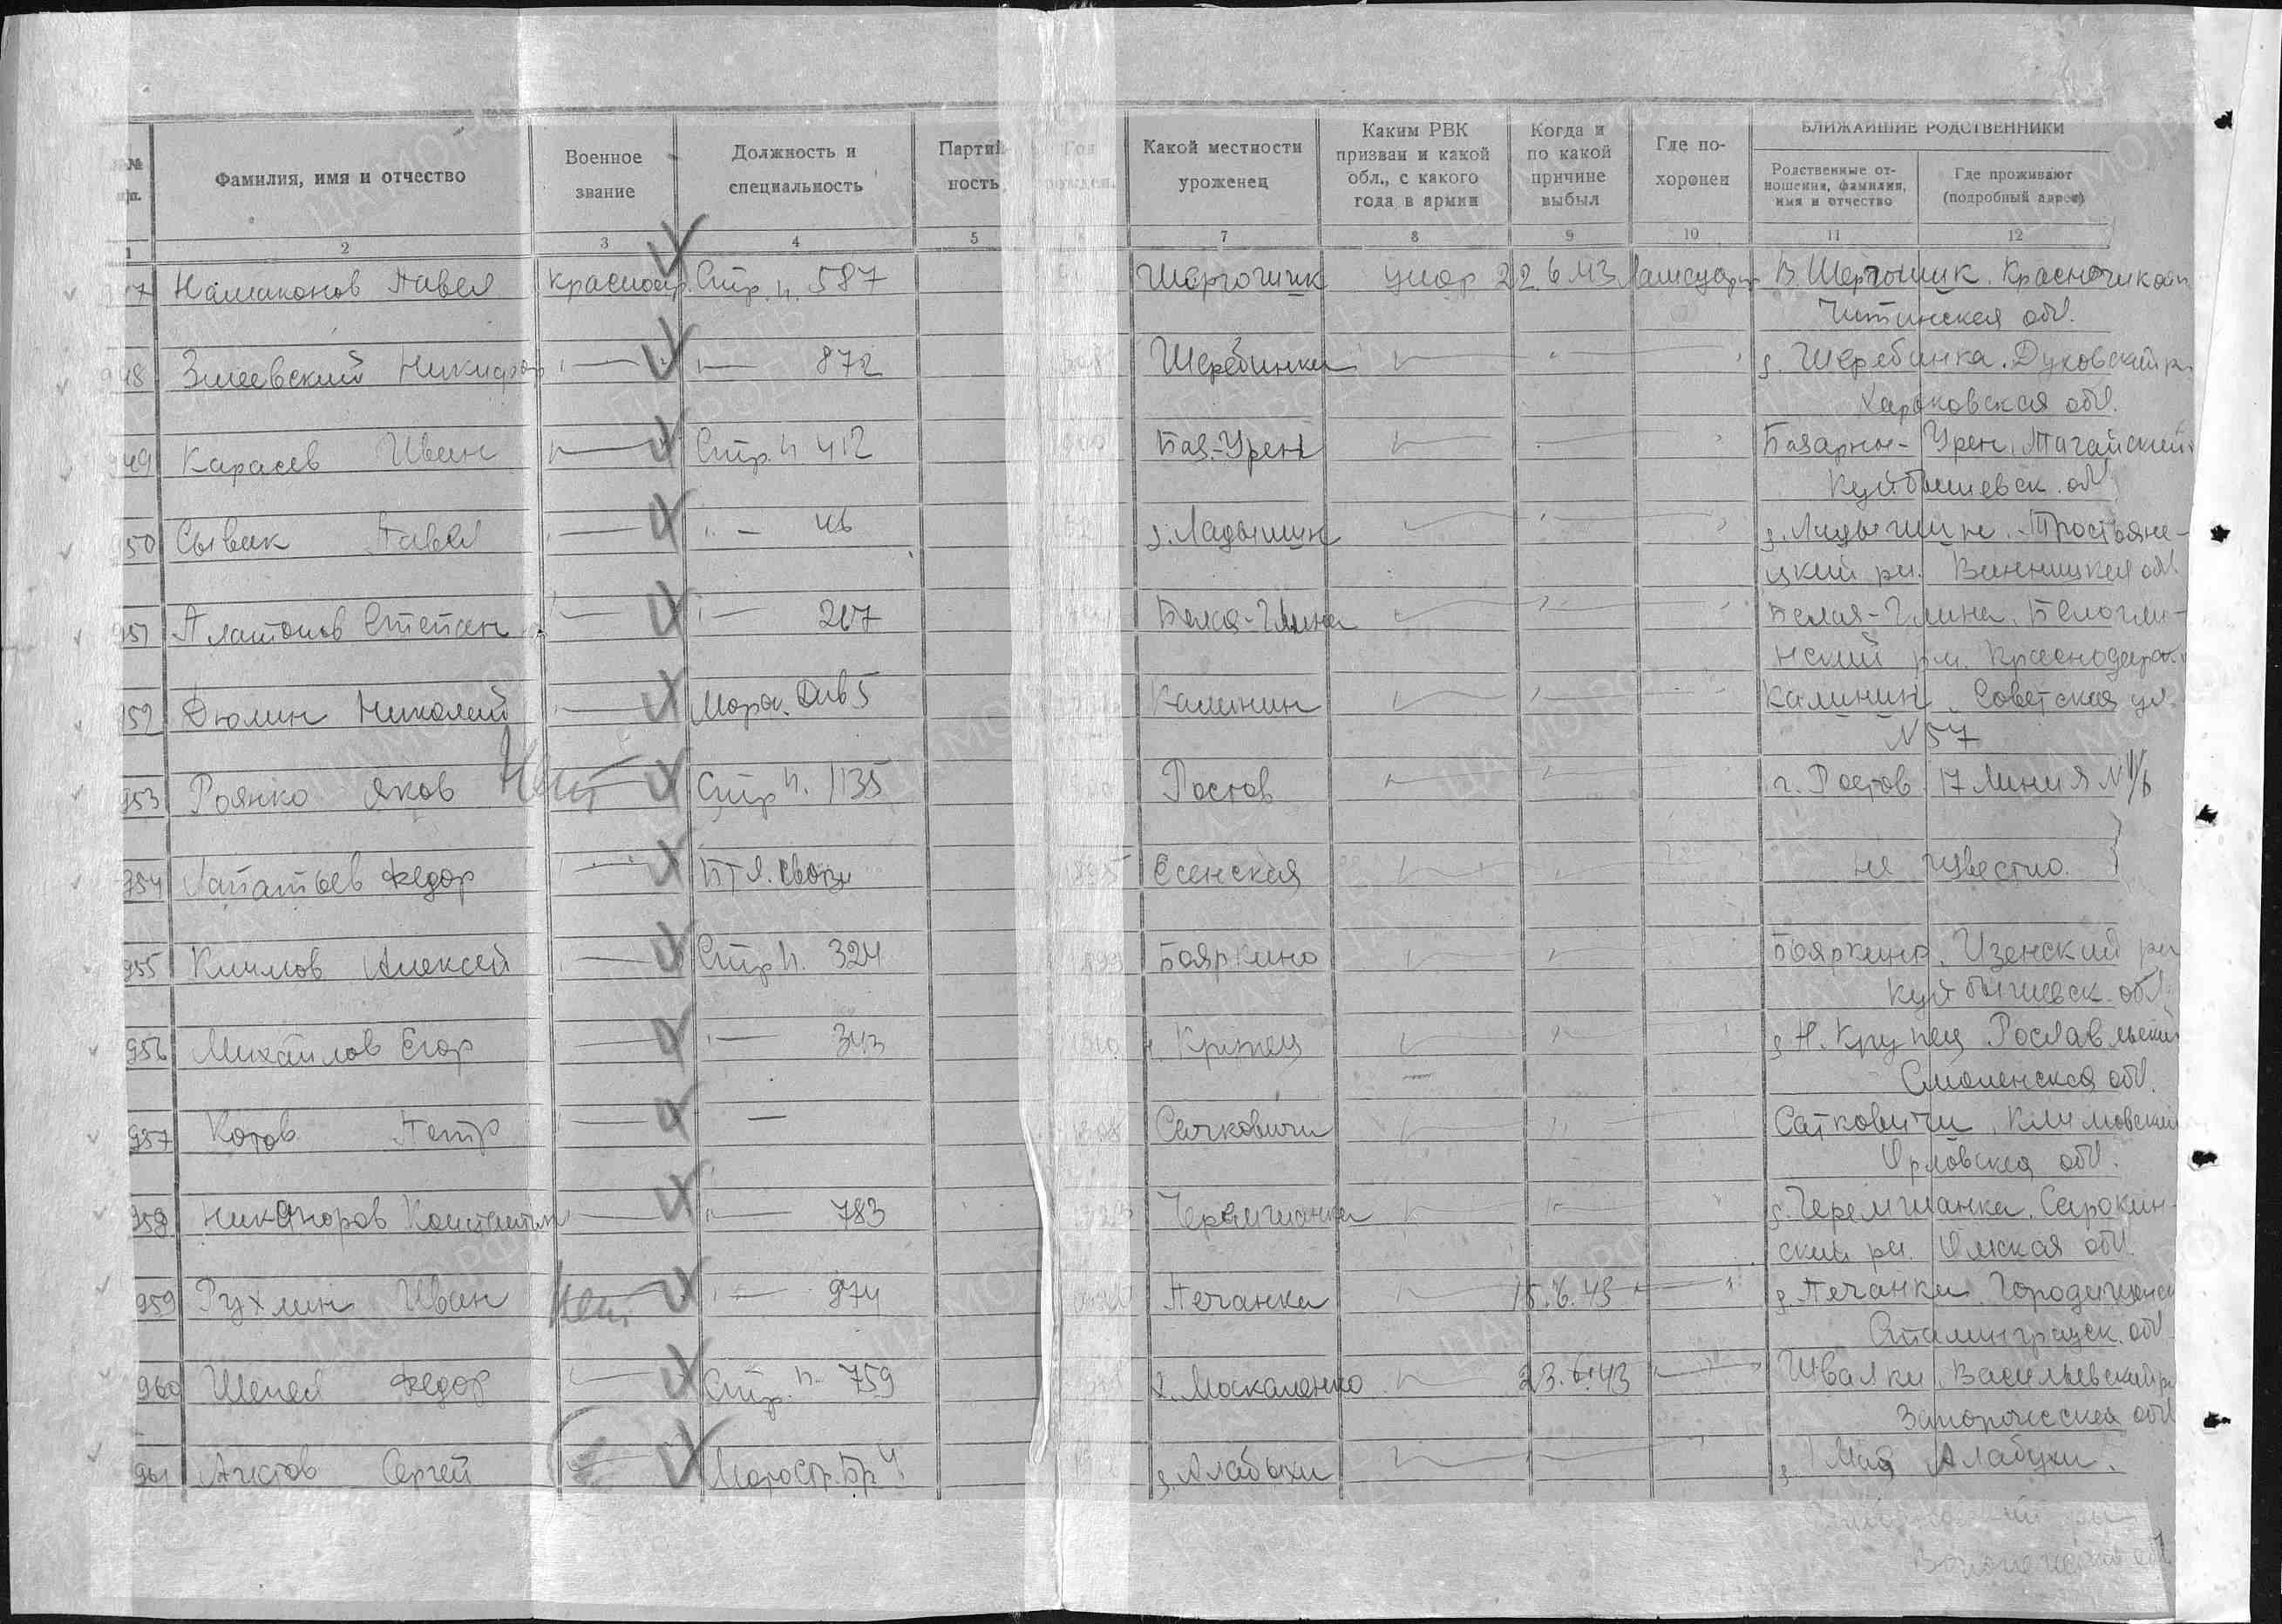 №№ п/п.
Фамилия, имя и отчество
Военное звание
Должность и специальность
Партий ность
Год рожден.
Какой местности уроженец
Каким РВК призван и какой обл., с какого года в армии
Когда и по какой причине выбыл
Где по- хоронен
БЛИЖАЙШИЕ РОДСТВЕННИКИ
Родственные от- ношения, фамилия, имя и отчество
Где проживают (подробный адрес)
1 2 3 4 5 7 8 9 10 11 12
Намаконов Павел красноар. Стр. п. 587 Шергочик умер 22.6.43 В. Шергочик. Красночикой
Читинская обл.
948 Змеевский Никифор 872 Шеребинка д. Шеребинка. Духовский р.
Харьковская обл.
949 Карасев Иван Стр. п. 412 Боя.-Урен Боярны-Урен, Тагайский
Куйбышевск. обл.
950 Сывак Павел 46 д. Ладыжин д. Ладыжин. Тростяне-
цкий рн. Винницкая обл.
951 Платонов Степан 267 Белая-Глина Белая-Глина. Белогли-
нский рн. Краснодарск.
952 Дюлин Николай Мора. Див 5 Калинин Калинин. Советская ул.
N 57
953 Роянко Яков Нет Стр п. 1135 Ростов г. Ростов 17 Линия N
954 Лапатьев Федор 1895 Есенская не известно.
955 Климов Алексей Стр п. 324 1899 Бояркино Бояркино. Изенский рн
Куйбышевск. обл.
956 Михайлов Егор 343 н. Крупец д Н. Крупец Рославльский
Смоленская обл.
957 Котов Петр — Сачковичи Сатковичи, Климовский
Орловская обл.
958 Никаноров Константин 783 1923 Черемшанка д. Черемшанка. Сарокин-
ский рн. Омская обл.
959 Рухлин Иван Нет. 974 Печанка 15.6.43 д. Печанка. Городищенск
Сталинградск. обл.
960 Шепел Федор Стр. п. 759 х. Москаленко 23.6.43 Швалки, Васильевский р
Запорожская обл
961 Аистов Сергей Мотостр. Бр 4 д. Алабыхи д. 1 Мая Алабухи.